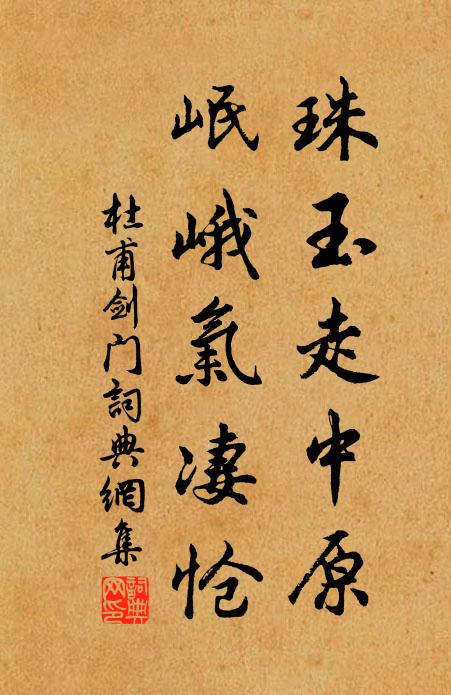 珠玉走中原
岷峨氣凄怆
杜甫剑门詞典網集
詞典网印